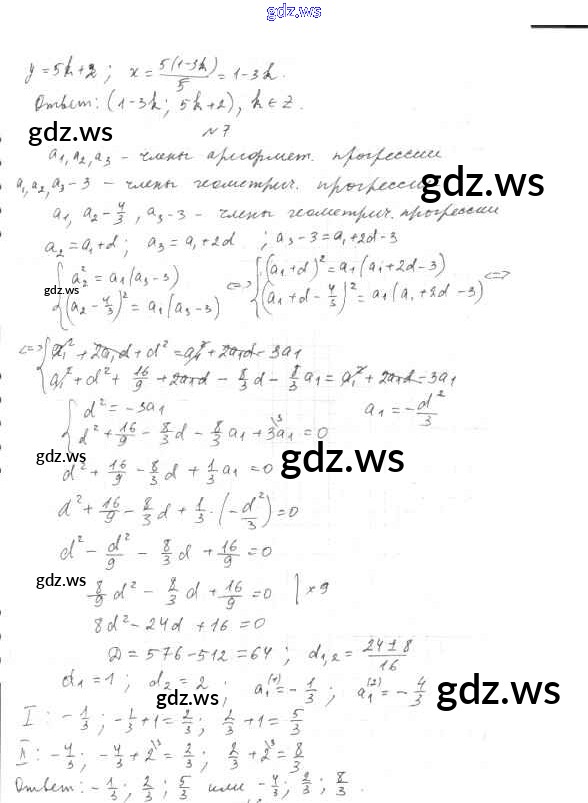 gdz.ws
y = 5k+2; x = 5(1-3k)/5 = 1-3k.
Ответ: (1-3k; 5k+2), k ∈ Z.
gdz.ws
№7
a₁, a₂, a₃ – члены арифмет. прогрессии
a₁, a₂, a₃-3 – члены геометрич. прогрессии
gdz.ws
a₁, a₂-4/3, a₃-3 – члены геометрич. прогрессии
a₂ = a₁+d; a₃ = a₁+2d; a₃-3 = a₁+2d-3
{ a₂² = a₁(a₃-3) <=> { (a₁+d)² = a₁(a₁+2d-3) <=>
gdz.ws
{ (a₂-4/3)² = a₁(a₃-3) { (a₁+d-4/3)² = a₁(a₁+2d-3)
<=> { a₁² + 2a₁d + d² = a₁² + 2a₁d - 3a₁
{ a₁² + d² + 16/9 + 2a₁d - 8/3 d - 8/3 a₁ = a₁² + 2a₁d - 3a₁
{ d² = -3a₁ a₁ = -d²/3
{ d² + 16/9 - 8/3 d - 8/3 a₁ + 3a₁ = 0
gdz.ws
d² + 16/9 - 8/3 d + 1/3 a₁ = 0
gdz.ws
d² + 16/9 - 8/3 d + 1/3 · (-d²/3) = 0
d² - d²/9 - 8/3 d + 16/9 = 0
gdz.ws
8/9 d² - 8/3 d + 16/9 = 0 | ×9
8d² - 24d + 16 = 0
D = 576-512 = 64; d₁,₂ = 24±8/16
d₁ = 1; d₂ = 2; a₁⁽¹⁾ = -1/3; a₁⁽²⁾ = -4/3
gdz.ws
gdz.ws
I: -1/3; -1/3+1 = 2/3; 2/3+1 = 5/3
II: -4/3; -4/3+2 = 2/3; 2/3+2 = 8/3
Ответ: -1/3; 2/3; 5/3 или -4/3; 2/3; 8/3.